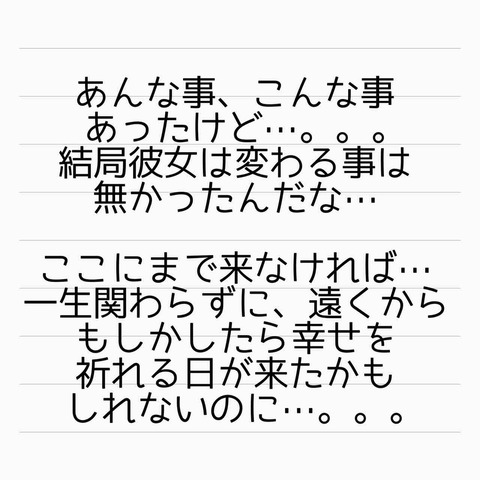 あんな事、こんな事
あったけど…。。。
結局彼女は変わる事は
無かったんだな…
ここにまで来なければ…
一生関わらずに、遠くから
もしかしたら幸せを
祈れる日が来たかも
しれないのに…。。。